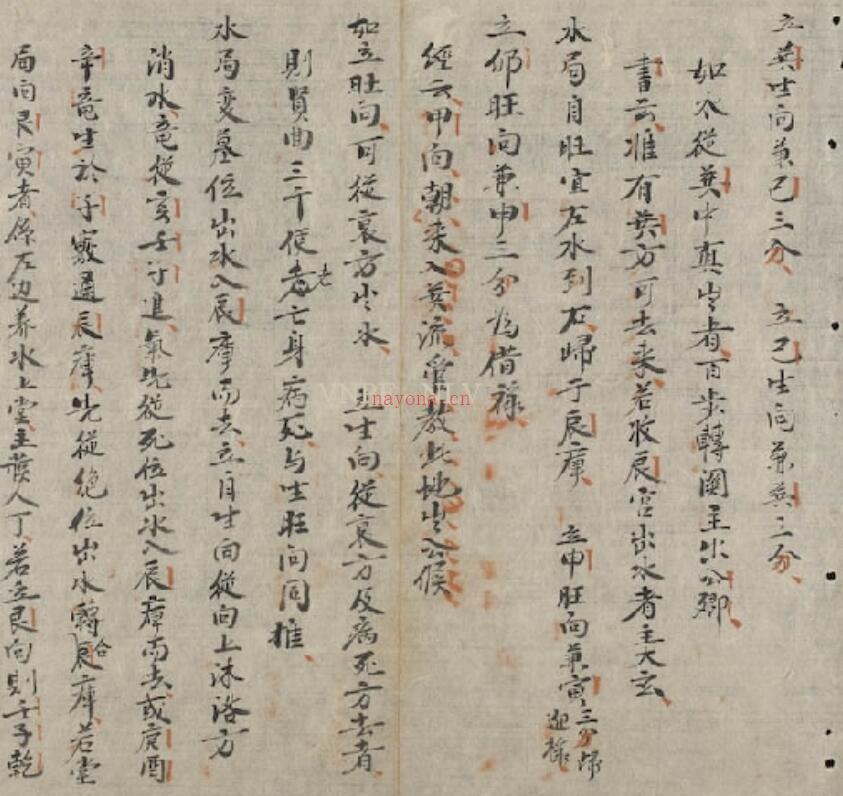 立巽生向兼巳三分 立巳生向兼巽三分
如水從巽中真出者百步轉闌主出公卿
書云惟有巽方可去来若收辰宮出水者主大玄
水局自旺宜左水到右歸于辰庫 立甲旺向兼寅三分归迎祿
立卯旺向兼甲三分為借祿
經云甲向朝来入巽流管教此地出公侯
如立旺向可從衰方出水 立生向從衰方及病死方去者
則賢曲三千便老亡身病死与生旺向同推
水局变墓位出水入辰庫而去立自生向從向上沐浴方
消水竜從亥壬子進氣先從死位出水入辰庫而去或庚酉
辛竜生於子竅通辰庫先從絶位出水轉合辰庫若堂
局向艮寅者係左边养水上堂主發人丁若立艮向則壬子乾
nayona.cn